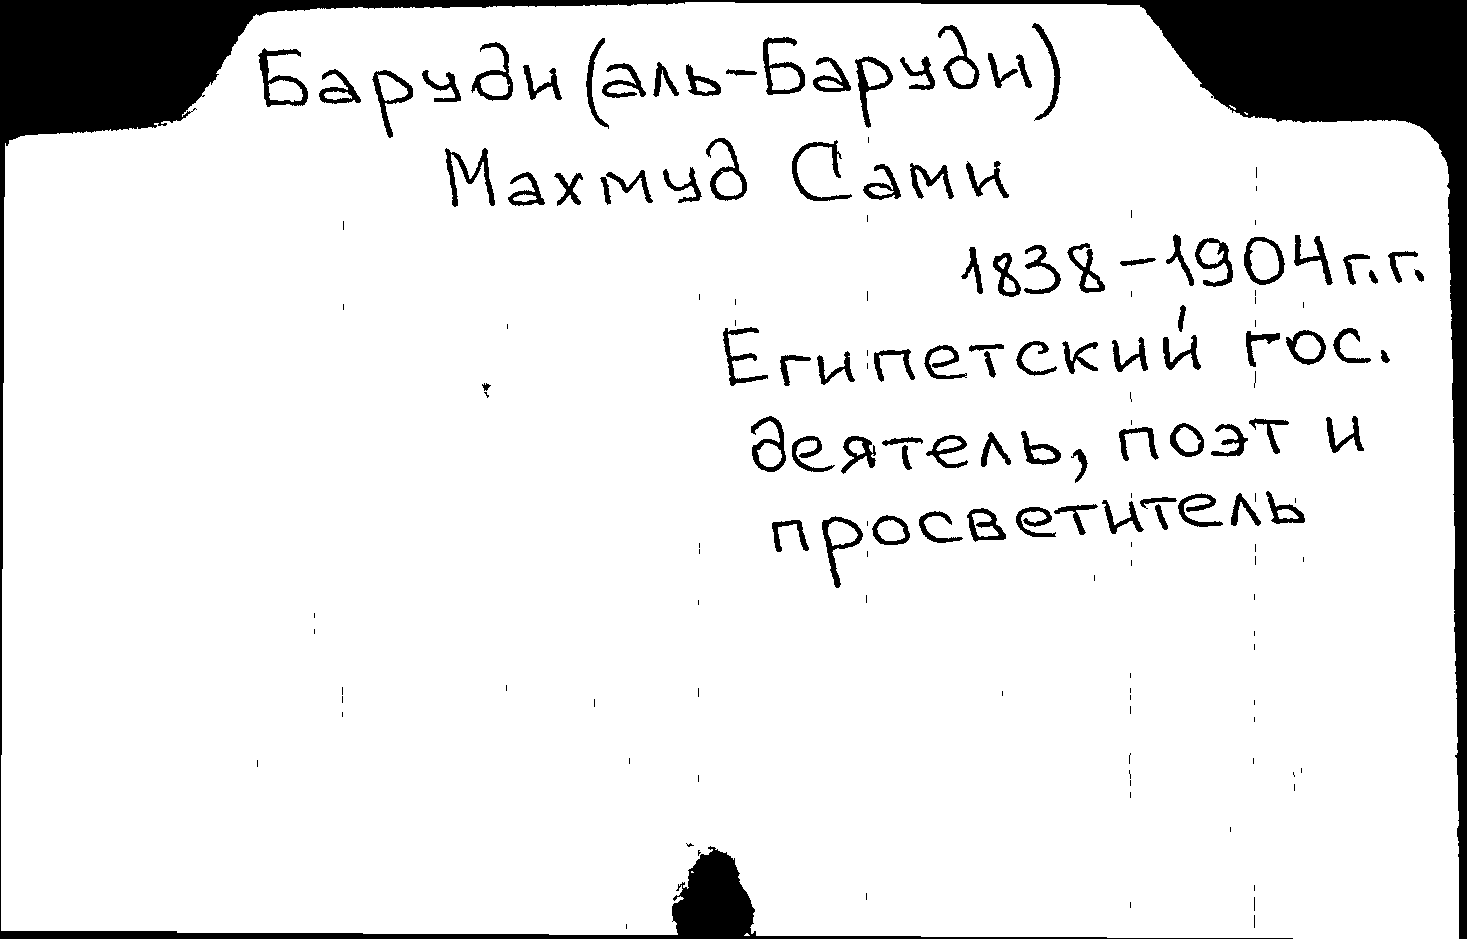 Баруди (аль-Баруди)
Махмуд Сами
1838-1904 г.г.
Египетский гос.
деятель, поэт и
просветитель